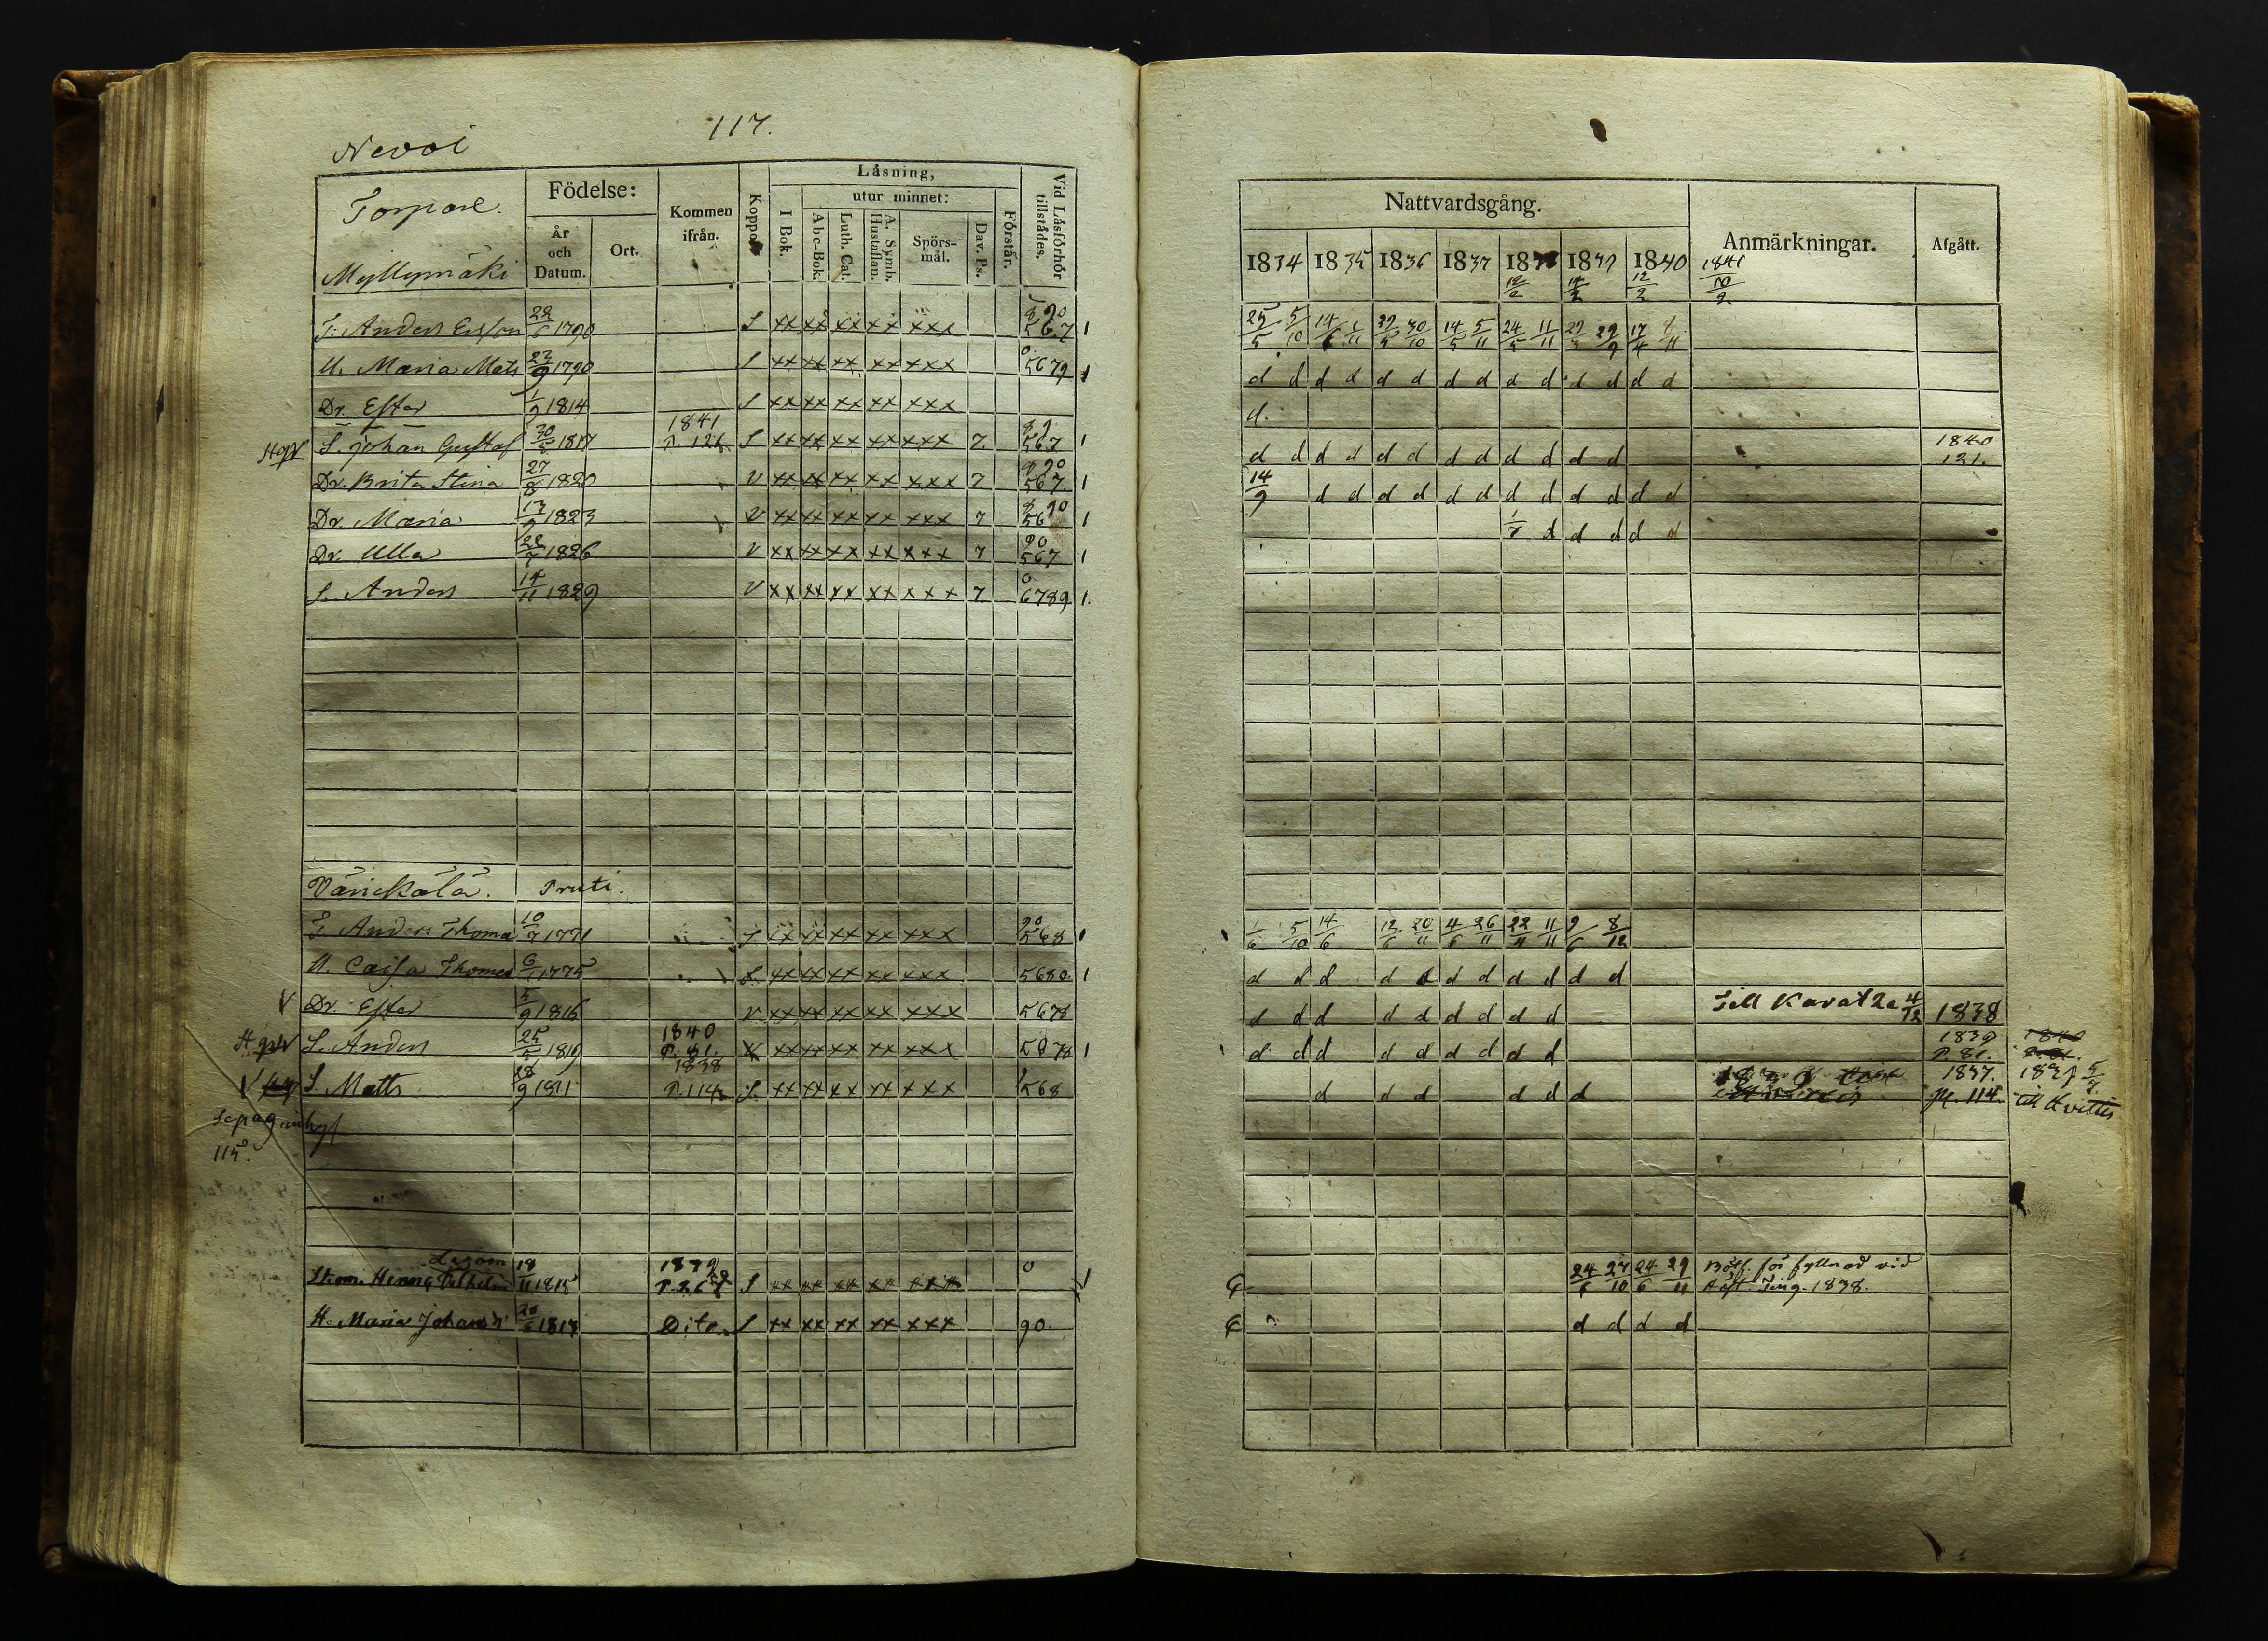 117.
Nevoi
Torpare.
Myllymäki
Födelse:
År och Datum.
Ort.
Kommen ifrån.
Koppor.
Läsning,
I Bok.
utur minnet:
Abc-Bok.
Luth. Cat.
A. Symb. Hustaflan.
Spörsmål.
Dav. Ps.
Förstår.
Vid Läsförhör tillstädes.
T. Anders Ersson 22/6 1790 S xx xx xx xx xxx 890 567 1
U. Maria Mats 23/9 1790 S xx xx xx xx xxx 0 5679 1
Dr. Ester 1/9 1814 S xx xx xx xx xxx
S. Johan Gustaf 30/5 1817 1841 P. 121 S xx xx xx xx xxx 7. 89 567 1
Dr. Brita Stina 27/8 1820 V xx xx xx xx xxx 7 890 567 1
Dr. Maria 13/9 1823 V xx xx xx xx xxx 7 890 56 1
Dr. Ulla 22/7 1826 V xx xx xx xx xxx 7 90 567 1
S. Anders 14/11 1829 V xx xx xx xx xxx 7. 0 6789 1.
Vänickälä. Pruti.
T. Anders Thomas 10/7 1771 S xx xx xx xx xxx 90 568 1
U. Caisa Thomas 6/1 1775 S xx xx xx xx xxx 5680. 1
V Dr. Ester 5/9 1816 V xx xx xx xx xxx 5678
S. Anders 25/5 1819 1840 P. 81. xx xx xx xx xxx 5678 1
S. Matts 18/9 1811 1838 P. 114 S. xx xx xx xx xxx 568
115.
Henric Vilhelm 18/11 1815 1839 P. 267 S xx xx xx xx xxx 0
H. Maria Johansd 20/5 1813 Dito S xx xx xx xx xxx 90.
Nattvardsgång.
Anmärkningar.
Afgått.
1834 1835 1836 1837 1838 1839 1840 1841
25/5 5/10 14/6 1/11 29/5 30/10 14/5 5/11 24/5 11/11 29/5 29/9 17/4 1/11
d d d d d d d d d d d d d d
d.
d d d d d d d d d d d d 1840 121.
14/9 d d d d d d d d d d d d
1/7 d d d d d
1/6 5/10 14/6 12/6 20/11 4/6 26/11 22/4 11/11 9/6 8/12
d d d d d d d d d d d
d d d d d d d d d Till Karat 2a 4/12 1838
d d d d d d d d d 1839 P. 81.
d d d d d d 1837. pg. 114. till Hvittis
24/6 27/10 24/6 29/11 Bötf. för fyllerad vid
Höst. Ting. 1838.
d d d d